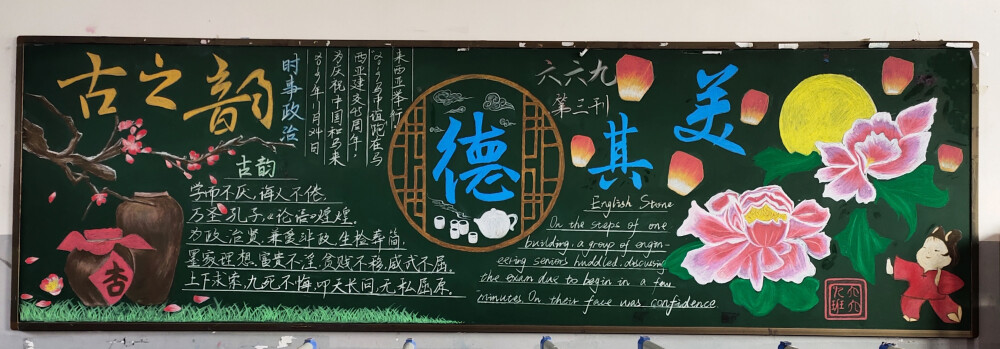 古之韵
时事政治
2019年11月24日
为庆祝中国和马来
西亚建交45周年,
“2019马中谊跑在马
来西亚举行
古韵
学而不厌,诲人不倦。
万圣孔子,《论语》辉煌。
为政治贤,兼爱非政,生检葬简,
墨家理想,富贵不淫,贫贱不移,威武不屈。
上下求索,九死不悔,叩天长问,无私屈原。
杏
德其美
六六九
第三刊
English Stone
On the steps of one
building, a group of engin-
eering seniors huddled, discussing
the exam due to begin in a few
minutes On their face was confidence
六六九班